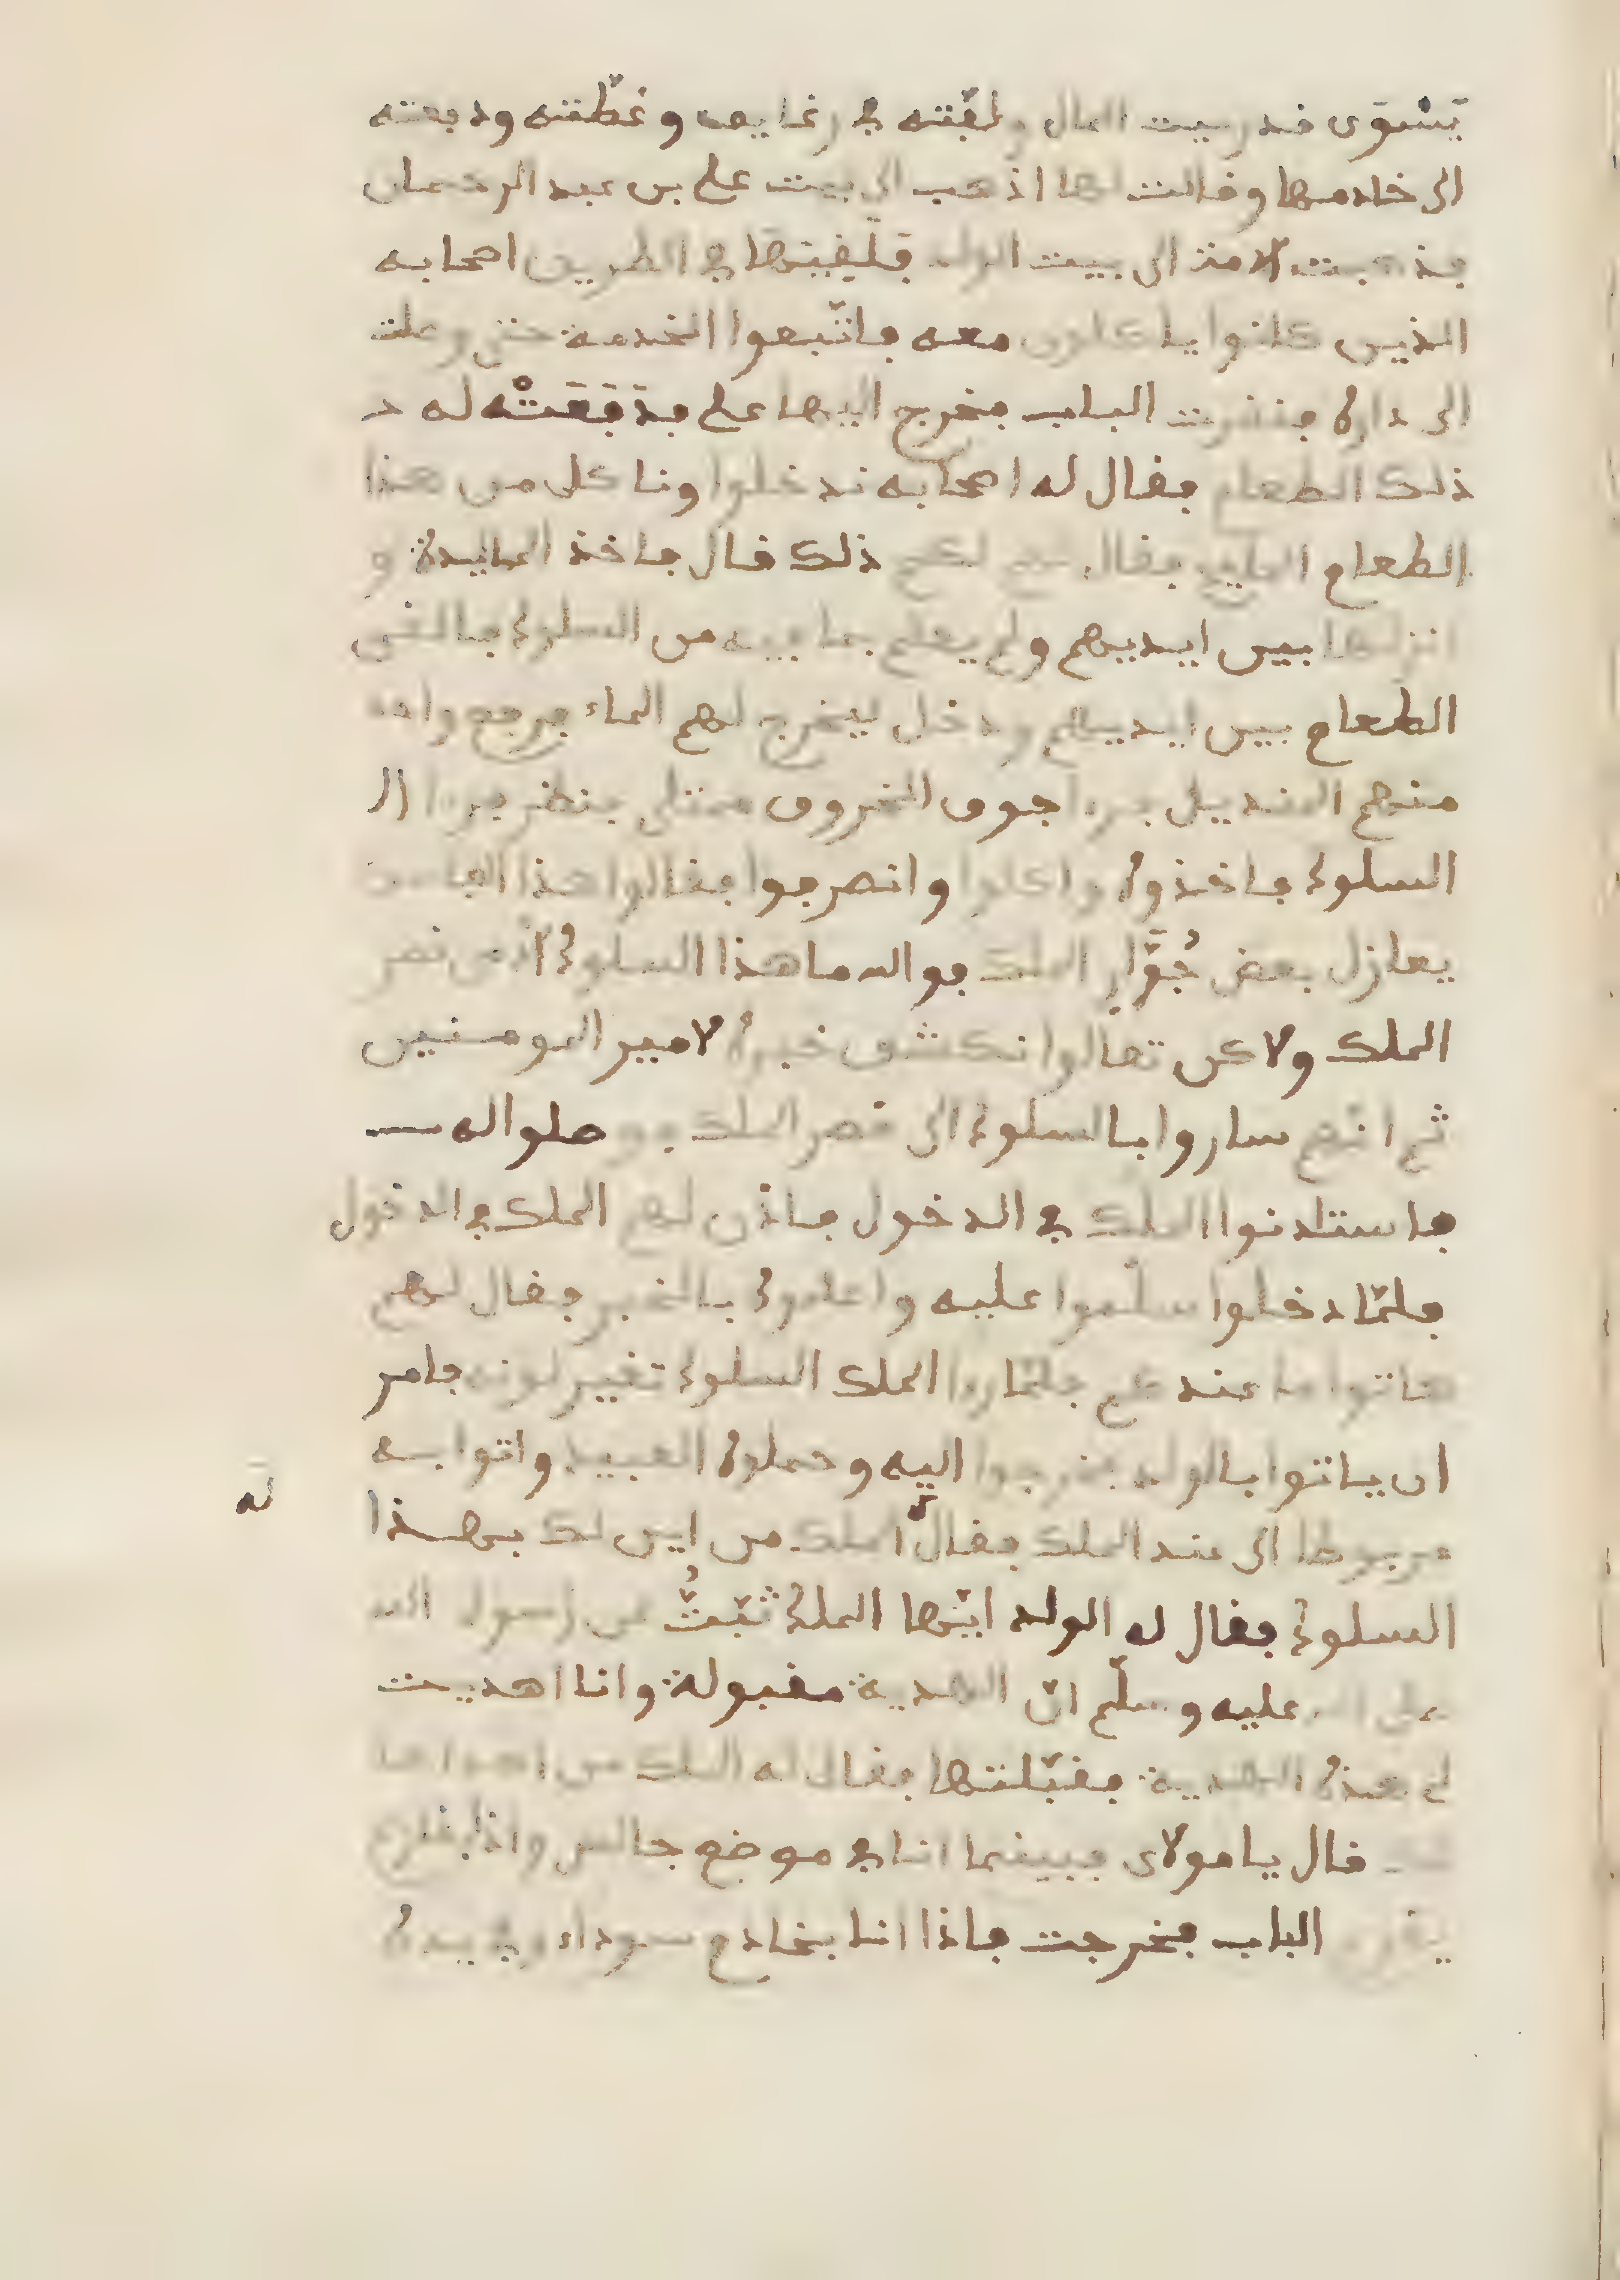 يَسْوَى قدر بيت المال ولقّته في رغايف وغطّته ودفعته
الى خادمها وقالت لها اذهب الى بيت علي بن عبد الرحمان
فذهبت الامة الى بيت الولد فلقيتها في الطريق اصحابه
الذين كانوا ياكلون معه فاتّبعوا الخدمة حتى وصلت
الى داره فنقرت الباب فخرج اليها علي فدَفَعَتْه له
ذلك الطعام فقال له اصحابه ندخلوا وناكل من هذا
الطعام المليح فقال لهم لكم ذلك قال فاخذ المايدة و
انزلها بين ايديهم ولم يعلم بما فيه من السلوك فالقى
الطعام بين ايديهم ودخل ليخرج لهم الماء فرفع واحد
منهم المنديل فرءا جوف الخروف ممتلى فنظر فرءا الى
السلوك فاخذوه واكلوا وانصرفوا فقالوا هذا
يغازل بعض جُوَّار الملك فوالله ما هذا السلوك الا من قصر
الملك ولاكن تعالوا نكشف خبره لامير المومنين
ثم انهم ساروا بالسلوك الى قصر الملك فوصلوا له
فاستاذنوا الملك في الدخول فاذن لهم الملك في الدخول
فلمّا دخلوا سلّموا عليه واعلموه بالخبر فقال لهم
هاتوا ما عندكم فلمّا رءا الملك السلوك تغير لونه فامر
ان ياتوا بالولد فخرجوا اليه وحملوه العبيد واتوا به
مربوطا الى عند الملك فقال الملك من اين لك بهذا
له
السلوك فقال له الولد ايّها الملك ثَبَتُّ عن رسول الله
صلى الله عليه وسلّم انّ الهدية مقبولة وانا اهديت
لي هذه الهدية فقبّلتها فقال له الملك من اهداها
لك قال يا مولاى فبينما انا في موضع جالس واذا بقارع
يقرع الباب فخرجت فاذا انا بخادم سوداء وفي يده